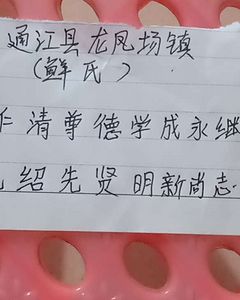 通江县龙凤场镇
(鲜氏)
仁清尊德学成永继
绍先贤明新尚志